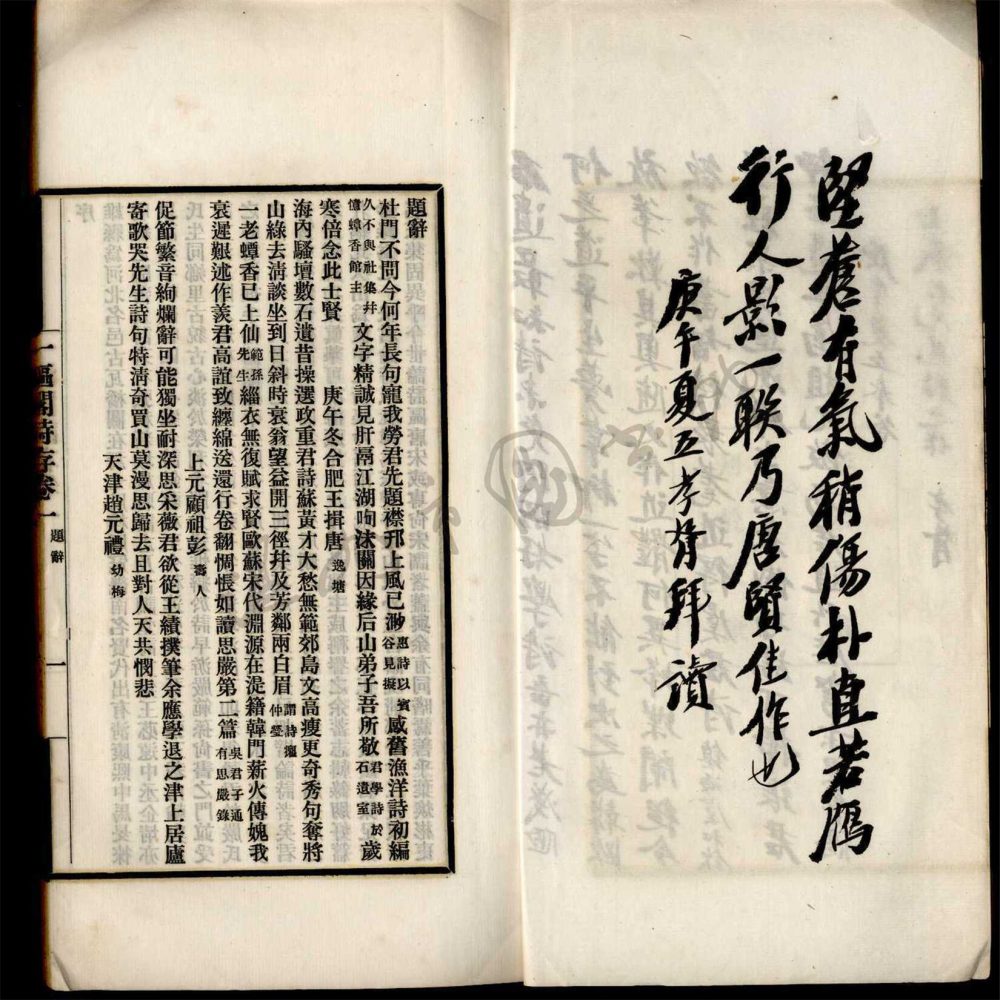 堅蒼有氣稍傷朴直若鴈
行人影一聯乃唐賢佳作也
庚午夏五孝胥拜讀
題辭
杜門不問今何年長句寵我勞君先題襟邗上風已渺惠詩以賓谷見擬感舊漁洋詩初編
久不與社集幷憶蟫香館主文字精誠見肝鬲江湖呴沫關因緣后山弟子吾所敬君學詩於石遺室歲
寒倍念此士賢
庚午冬合肥王揖唐逸塘
海內騷壇數石遺昔操選政重君詩蘇黃才大愁無範郊島文高瘦更奇秀句奪將
山綠去清談坐到日斜時衰翁望益開三徑幷及芳鄰兩白眉謂詩龕仲瑩
上元顧祖彭壽人
一老蟫香已上仙範孫先生緇衣無復賦求賢歐蘇宋代淵源在湜籍韓門薪火傳媿我
衰遲艱述作羨君高誼致纏綿送還行卷翻惆悵如讀思嚴第二篇吳君子通有思嚴錄
促節繁音絢爛辭可能獨坐耐深思采薇君欲從王績撲筆余應學退之津上居廬
寄歌哭先生詩句特清奇買山莫漫思歸去且對人天共憫悲
天津趙元禮幼梅
一漚閣詩存卷一
題辭
一